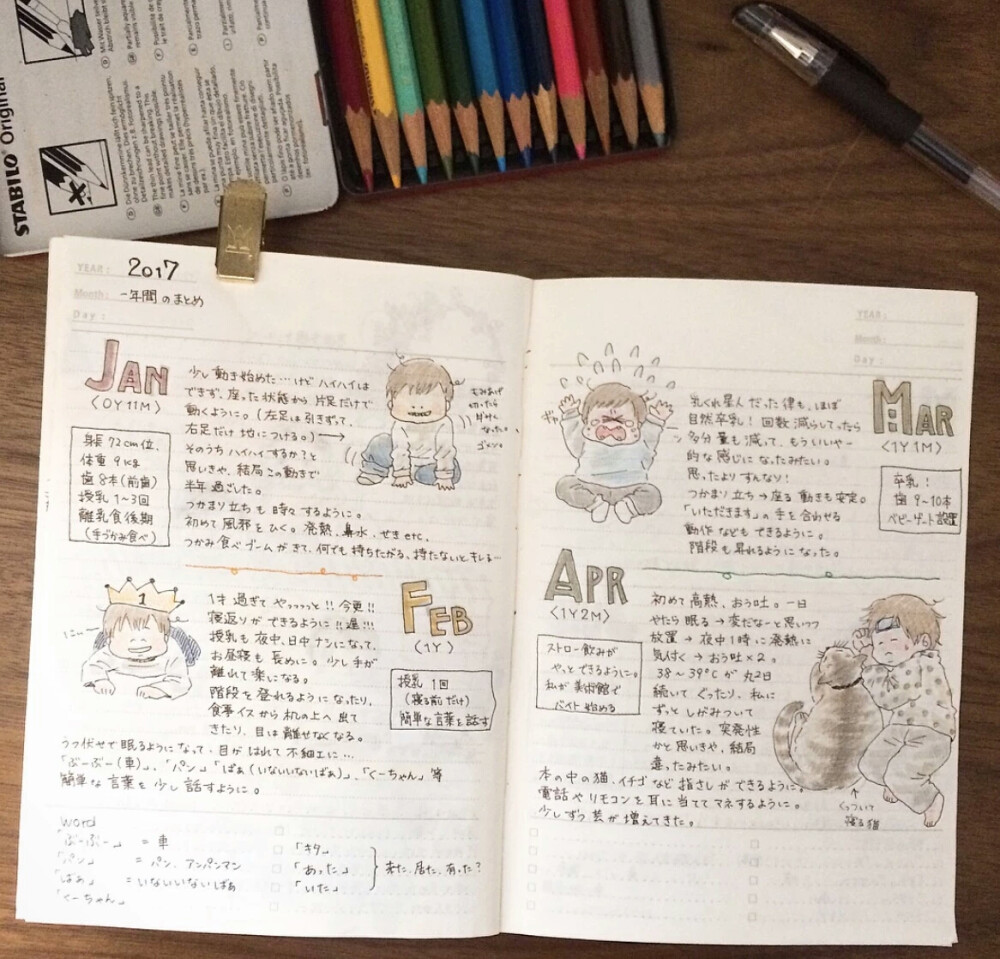 STABILO Original
YEAR: 2017
Month: 一年間のまとめ
Day:
JAN
〈0Y11M〉
身長72cm位.
体重 9kg
歯8本(前歯)
授乳1〜3回
離乳食後期
(手づかみ食べ)
少し動き始めた…けど ハイハイは
できず、座った状態から片足だけで
動くように。(左足は引きずって、
右足だけ地につける。)→
そのうちハイハイするか?と
思いきや、結局この動きで
半年過ごした。
つかまり立ちも時々するように。
初めて風邪をひく。発熱、鼻水、せき etc.
つかみ食べブームがきて、何でも持ちたがる、持たないとキレる…
もみあげ
切ったら
ゴメン。
FEB
〈1Y〉
授乳 1回
(寝る前だけ)
簡単な言葉を話す
1
1才過ぎて やっっっっと!!今更!!
寝返りができるように!!遅!!!
授乳も夜中、日中ナシになって、
お昼寝も長めに。少し手が
離れて楽になる。
階段を登れるようになったり、
食事イスから机の上へ出て
きたり、目は離せなくなる。
うつ伏せで眠るようになって、目がはれて不細工に…
「ぶーぶー(車)」、「パン」「ばぁ(いないいないばぁ)」、「くーちゃん」等
簡単な言葉を少し話すように。
word
「ぶーぶー」 = 車
「パン」 = パン、アンパンマン
「ばぁ」 = いないいないばぁ
「くーちゃん」
「キタ」
「あった」
「いた」
来た、居た、有った?
YEAR:
Month:
Day:
MAR
〈1Y1M〉
卒乳!
歯 9〜10本
ベビーゲート設置
乳くれ星人だった僕も、ほぼ
自然卒乳!回数減らしてったら
多分量も減って、もういいやー
的な感じになったみたい。
思ったよりすんなり!
つかまり立ち→座る 動きも安定。
「いただきます」の手を合わせる
動作などもできるように。
階段も昇れるようになった。
APR
〈1Y2M〉
ストロー飲みが
やっとできるように。
私が美術館で
バイト始める
初めて高熱、おう吐。一日
やたら眠る→変だなーと思いつつ
放置→夜中1時に発熱に
気付く→おう吐×2。
38〜39℃が丸2日
続いてぐったり、私に
ずっとしがみついて
寝ていた。突発性
かと思いきや、結局
違ったみたい。
本の中の猫、イチゴなど指さしができるように。
電話やリモコンを耳に当ててマネするように。
少しずつ芸が増えてきた。
↑
くっついて
寝る猫